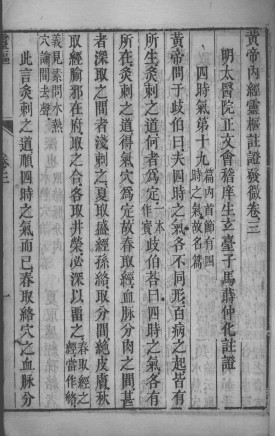 黃帝內經靈樞註證發微卷三
明太醫院正文會稽庠生玄臺子馬蒔仲化註證
四時氣第十九篇內首節有四時之氣故名篇
黃帝問于歧伯曰夫四時之氣各不同形百病之起皆有
所生灸刺之道何者為定一本作寳歧伯荅曰四時之氣各有
所在灸刺之道得氣穴為定故春取經血脉分肉之間甚
者深取之間者淺刺之夏取盛經孫絡取分間絕皮膚秋
取經腧邪在府取之合冬取井榮必深以留之春取經之經當作絡
義見素問水熱穴論間去聲
此言灸刺之道順四時之氣而已春取絡穴之血脉分
靈樞
卷三
一